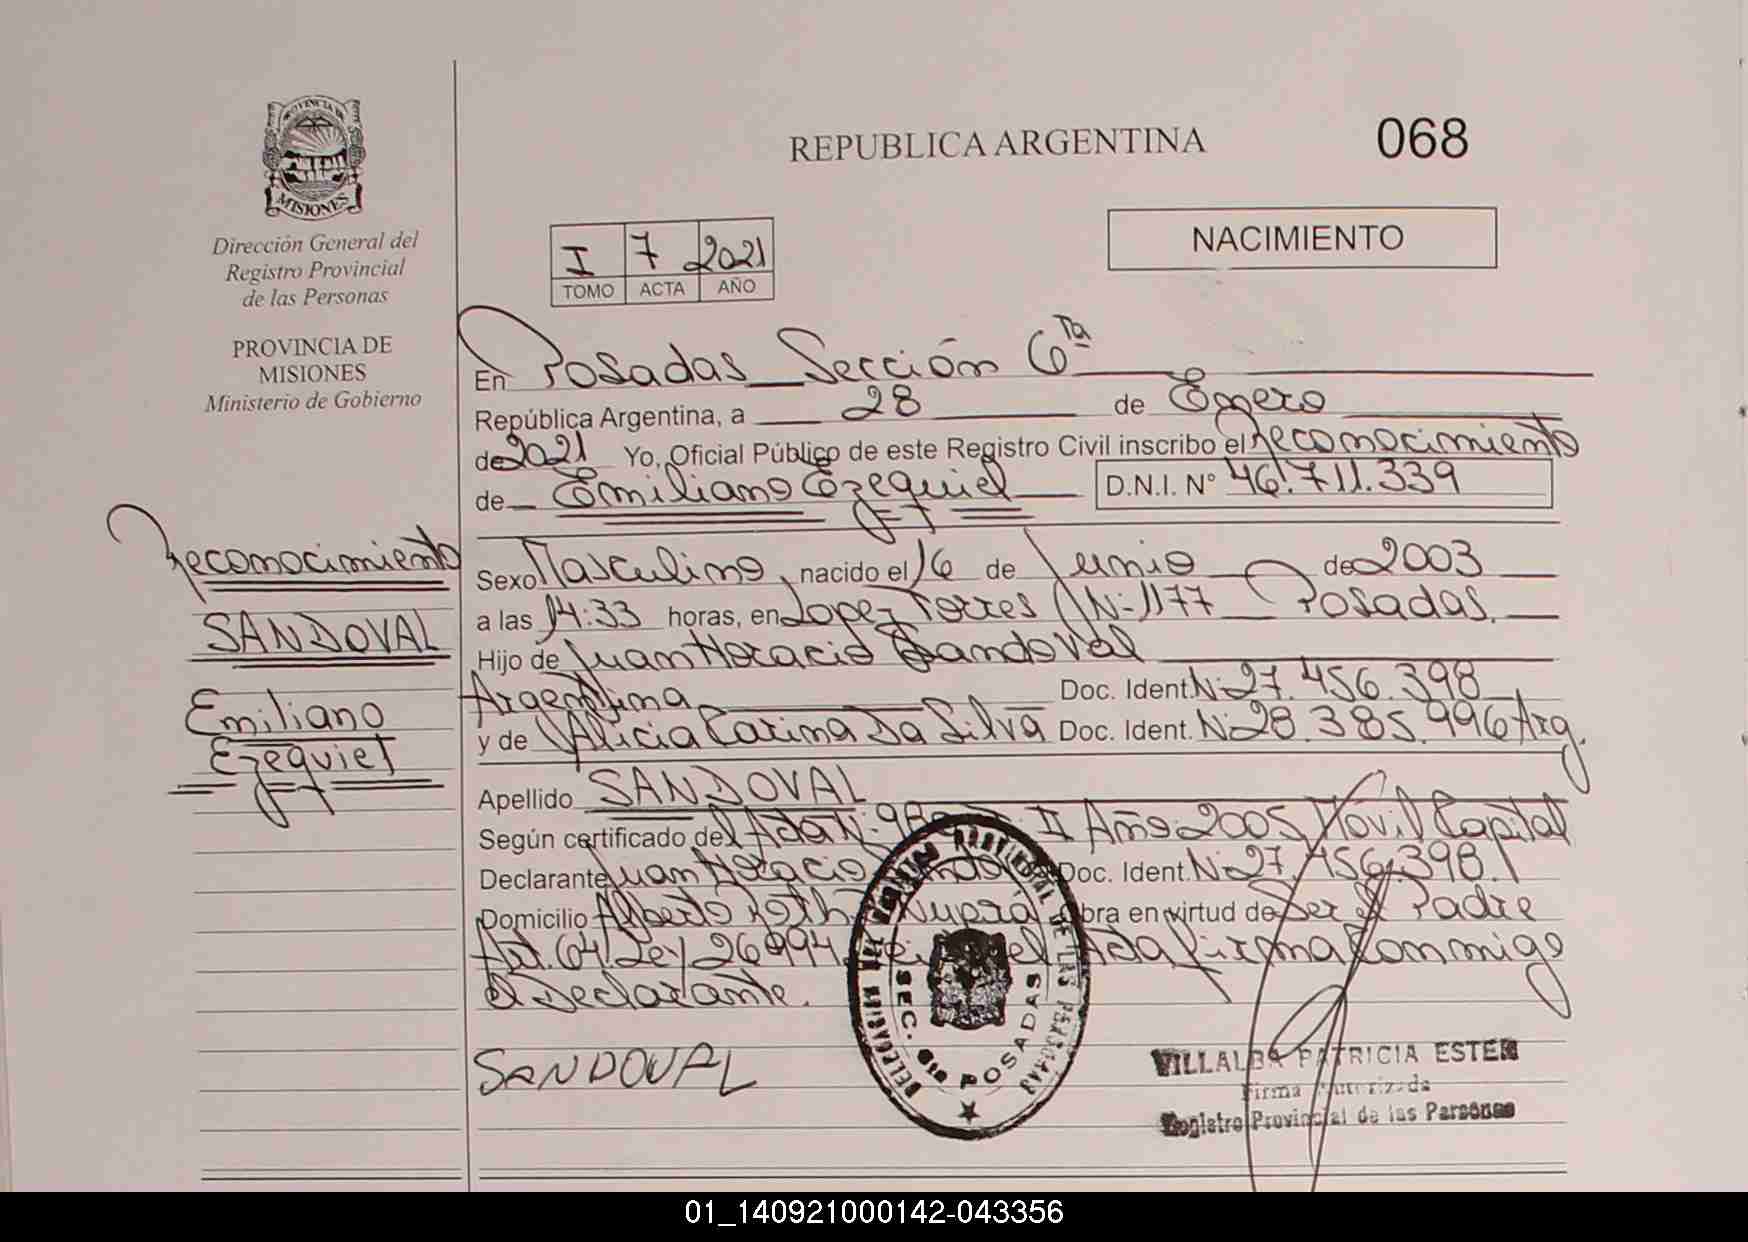 PROVINCIA DE
MISIONES
Dirección General del
Registro Provincial
de las Personas
PROVINCIA DE
MISIONES
Ministerio de Gobierno
REPUBLICA ARGENTINA
068
NACIMIENTO
I 7 2021
TOMO ACTA AÑO
En Posadas Sección 6ta
República Argentina, a 28 de Enero
de 2021 Yo, Oficial Público de este Registro Civil inscribo el Reconocimiento
de Emiliano Ezequiel D.N.I. N° 46.711.339
Reconocimiento
SANDOVAL
Emiliano
Ezequiel
Sexo Masculino, nacido el 16 de Junio de 2003
a las 14:33 horas, en Lopez Torres N° 1177 Posadas.
Hijo de Juan Horacio Sandoval
Argentina Doc. Ident. N° 27.456.398
y de Alicia Carina Da Silva Doc. Ident. N° 28.385.996 Arg.
Apellido SANDOVAL
Según certificado del Acta N° II Año 2005 Movil Capital
Declarante Juan Horacio Doc. Ident. N° 27.456.398
Domicilio Alberto Roth Obra en virtud de Ser el Padre
Art. 64 Ley 26994 el Acta firma Conmigo
el Declarante.
SANDOVAL
DELEGACION DEL REGISTRO PROVINCIAL DE LAS PERSONAS
SEC. 6ta POSADAS
VILLALBA PATRICIA ESTER
Firma Autorizada
Registro Provincial de las Personas
01_140921000142-043356